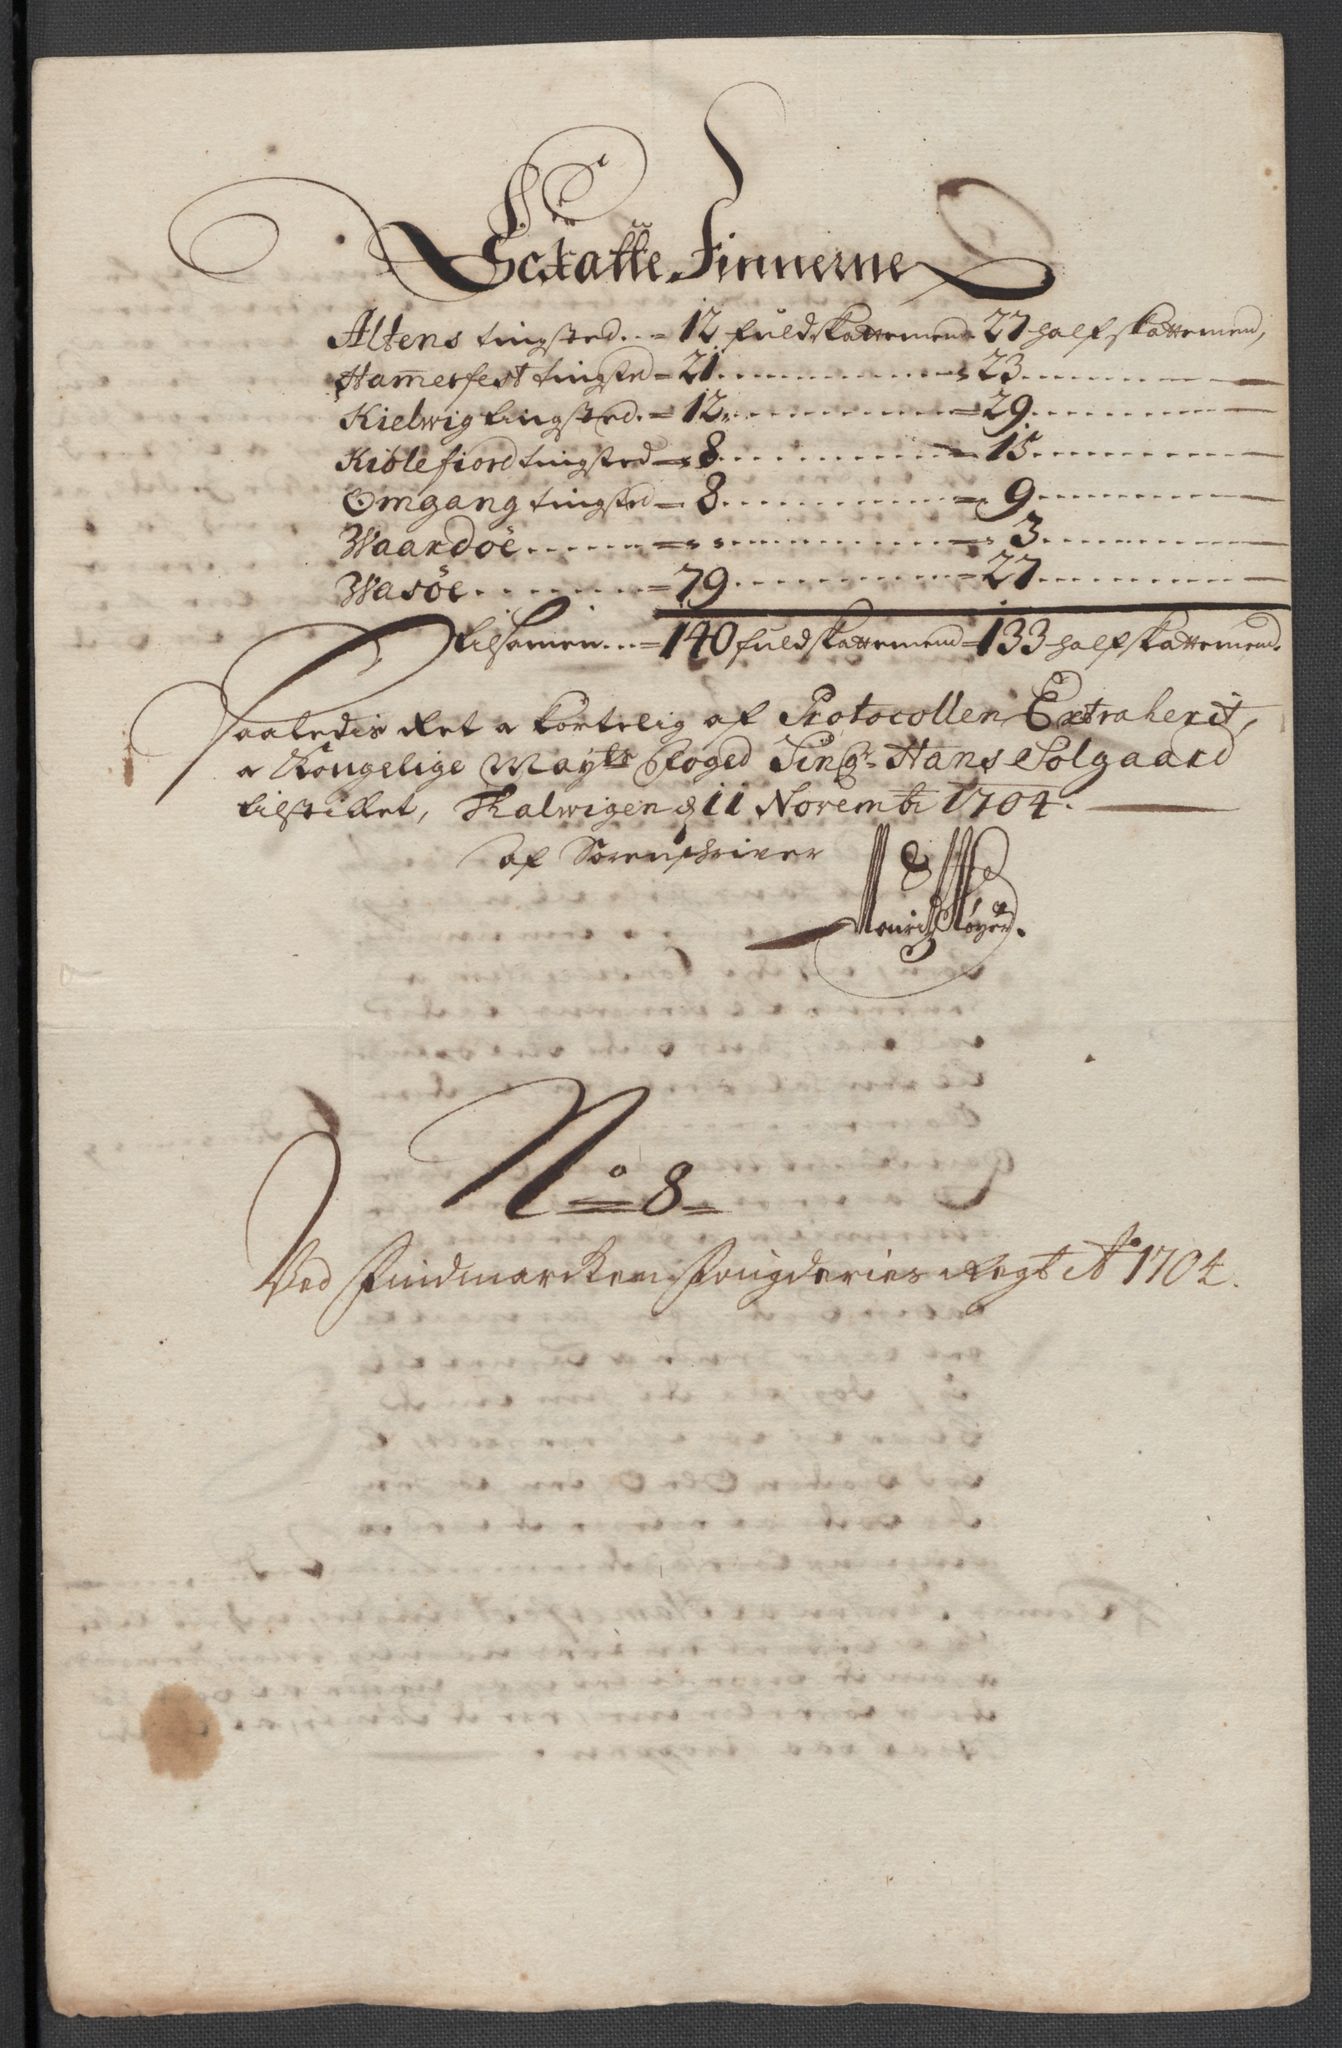 Schatte Finnerne
Altens tingsted... = 12 fuldskattemend = 27 half skattemend,
Hamerfest tingsted = 21 ............ = 23 ............
Kielwig tingsted. = 12 ............ = 29 ............
Kiølefiord tingsted = 8 ............ = 15 ............
Omgang tingsted = 8 ............ = 9 ............
Waardøe ....... = ............ = 3 ............
Wasøe ....... = 79 ............ = 27 ............
tilsamen... = 140 fuldskattemend = 133 half skattemend.
Saaledis Ret a kortelig af Protocollen Extraherit,
a Kongelige Mayts Foged Sinr. Hans Solgaard
tilstillet, Talwigen d 11 Novembr 1704.
af Sorenschriver
No 8
Ved Findmarchens Fougderies Regt Ao 1704.